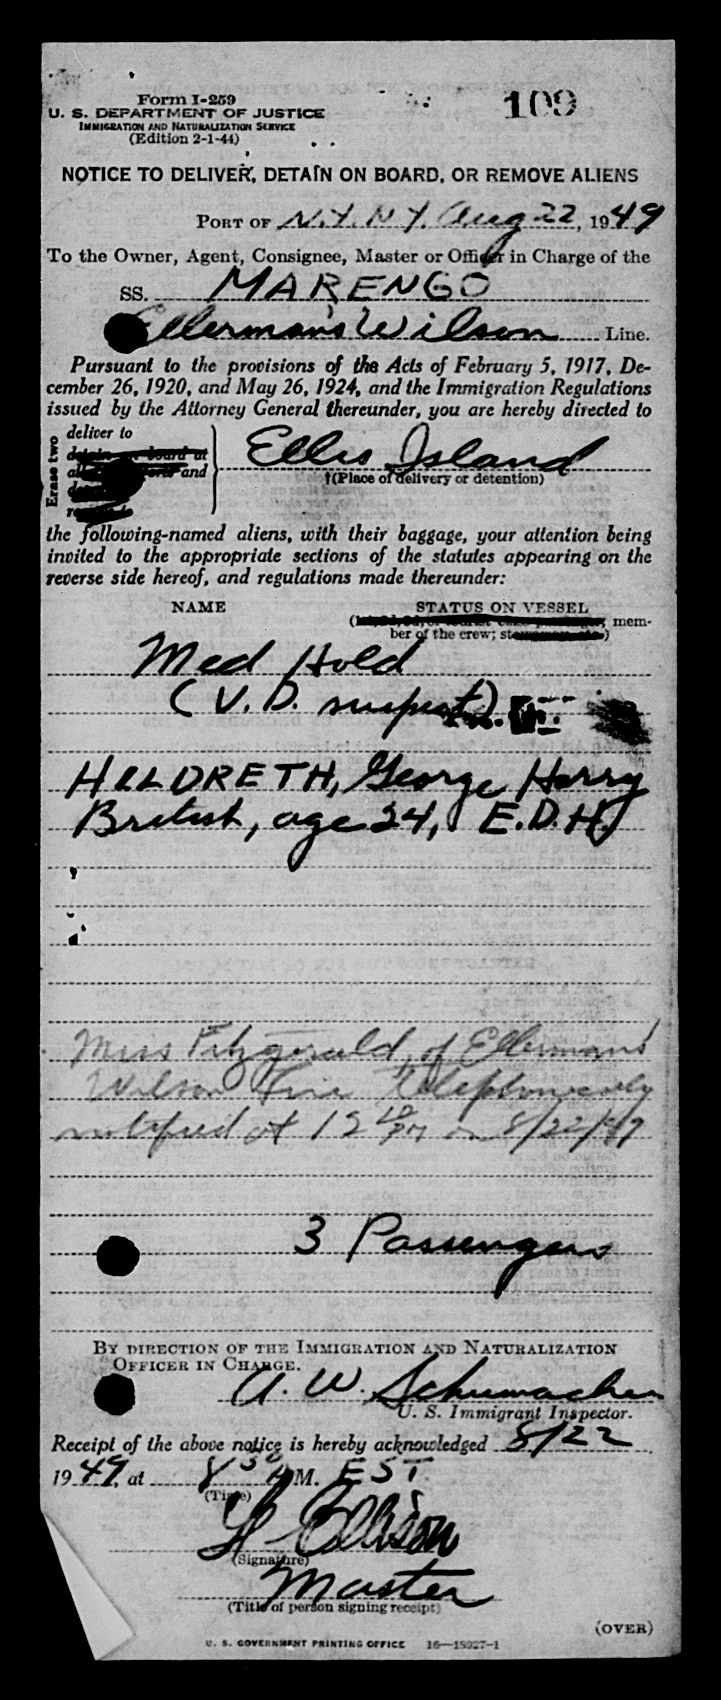 Form I-259
109
U. S. DEPARTMENT OF JUSTICE
IMMIGRATION AND NATURALIZATION SERVICE
(Edition 2-1-44)
NOTICE TO DELIVER, DETAIN ON BOARD, OR REMOVE ALIENS
PORT OF N.Y. N.Y. Aug 22, 1949
To the Owner, Agent, Consignee, Master or Officer in Charge of the
SS. MARENGO
Ellerman's Wilson Line.
Pursuant to the provisions of the Acts of February 5, 1917, De-
cember 26, 1920, and May 26, 1924, and the Immigration Regulations
issued by the Attorney General thereunder, you are hereby directed to
Erase two
deliver to
detain on board at
and
Ellis Island
†(Place of delivery or detention)
the following-named aliens, with their baggage, your attention being
invited to the appropriate sections of the statutes appearing on the
reverse side hereof, and regulations made thereunder:
NAME
STATUS ON VESSEL
mem-
ber of the crew;
Med Hold
(V. D. suspect)
HILDRETH, George Harry
British, age 24, E.D.H.
Miss Fitzgerald, of Ellerman's
Wilson Line telephonically
notified at 12 10 PM on 8/22/49
3 Passengers
BY DIRECTION OF THE IMMIGRATION AND NATURALIZATION
OFFICER IN CHARGE.
A. W. Schumacher
U. S. Immigrant Inspector.
Receipt of the above notice is hereby acknowledged 8/22
1949, at 8 50 A M. EST
(Time)
Ellison
(Signature)
Master
(Title of person signing receipt)
(OVER)
U. S. GOVERNMENT PRINTING OFFICE 16—18927-1